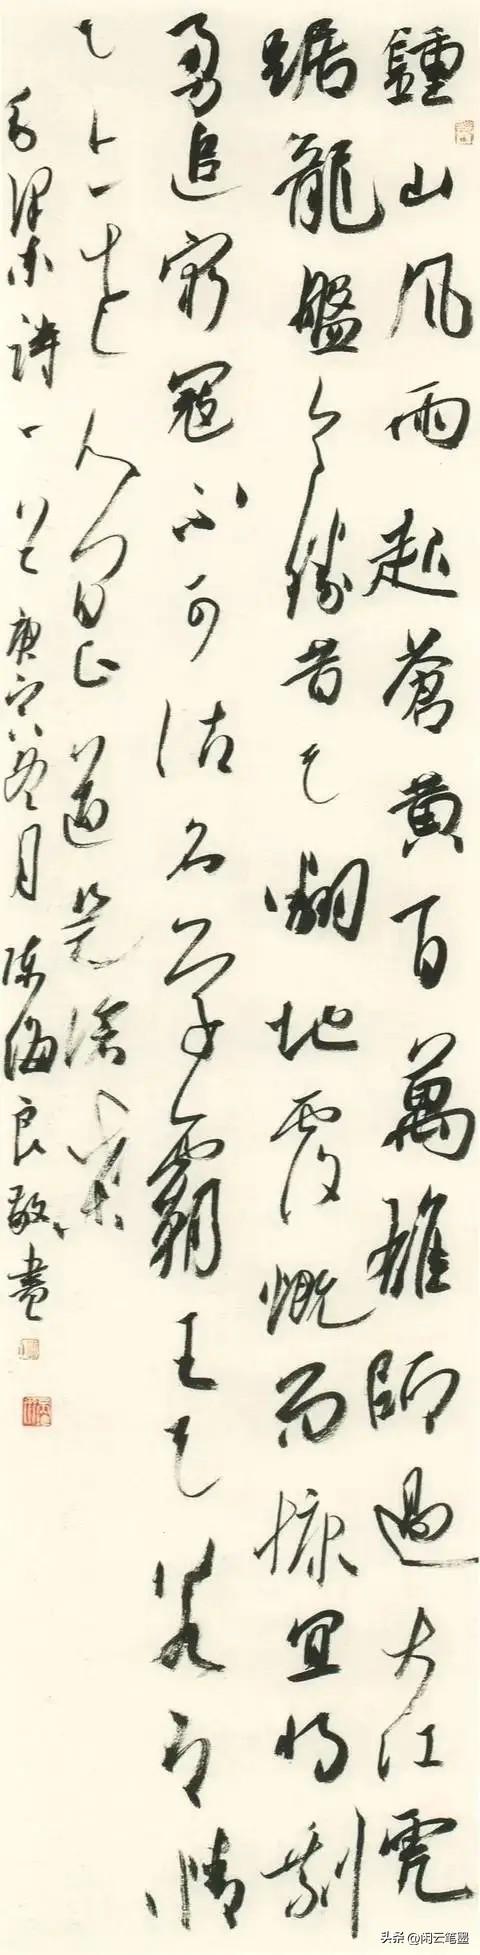 鍾山风雨起蒼黄百萬雄師過大江虎
踞龍盤今勝昔天翻地覆慨而慷宜將剩
勇追窮寇不可沽名學霸王天若有情
天亦老人間正道是滄桑
毛澤東詩一首 庚寅冬月 陳海良敬書
头条 @闲云笔墨